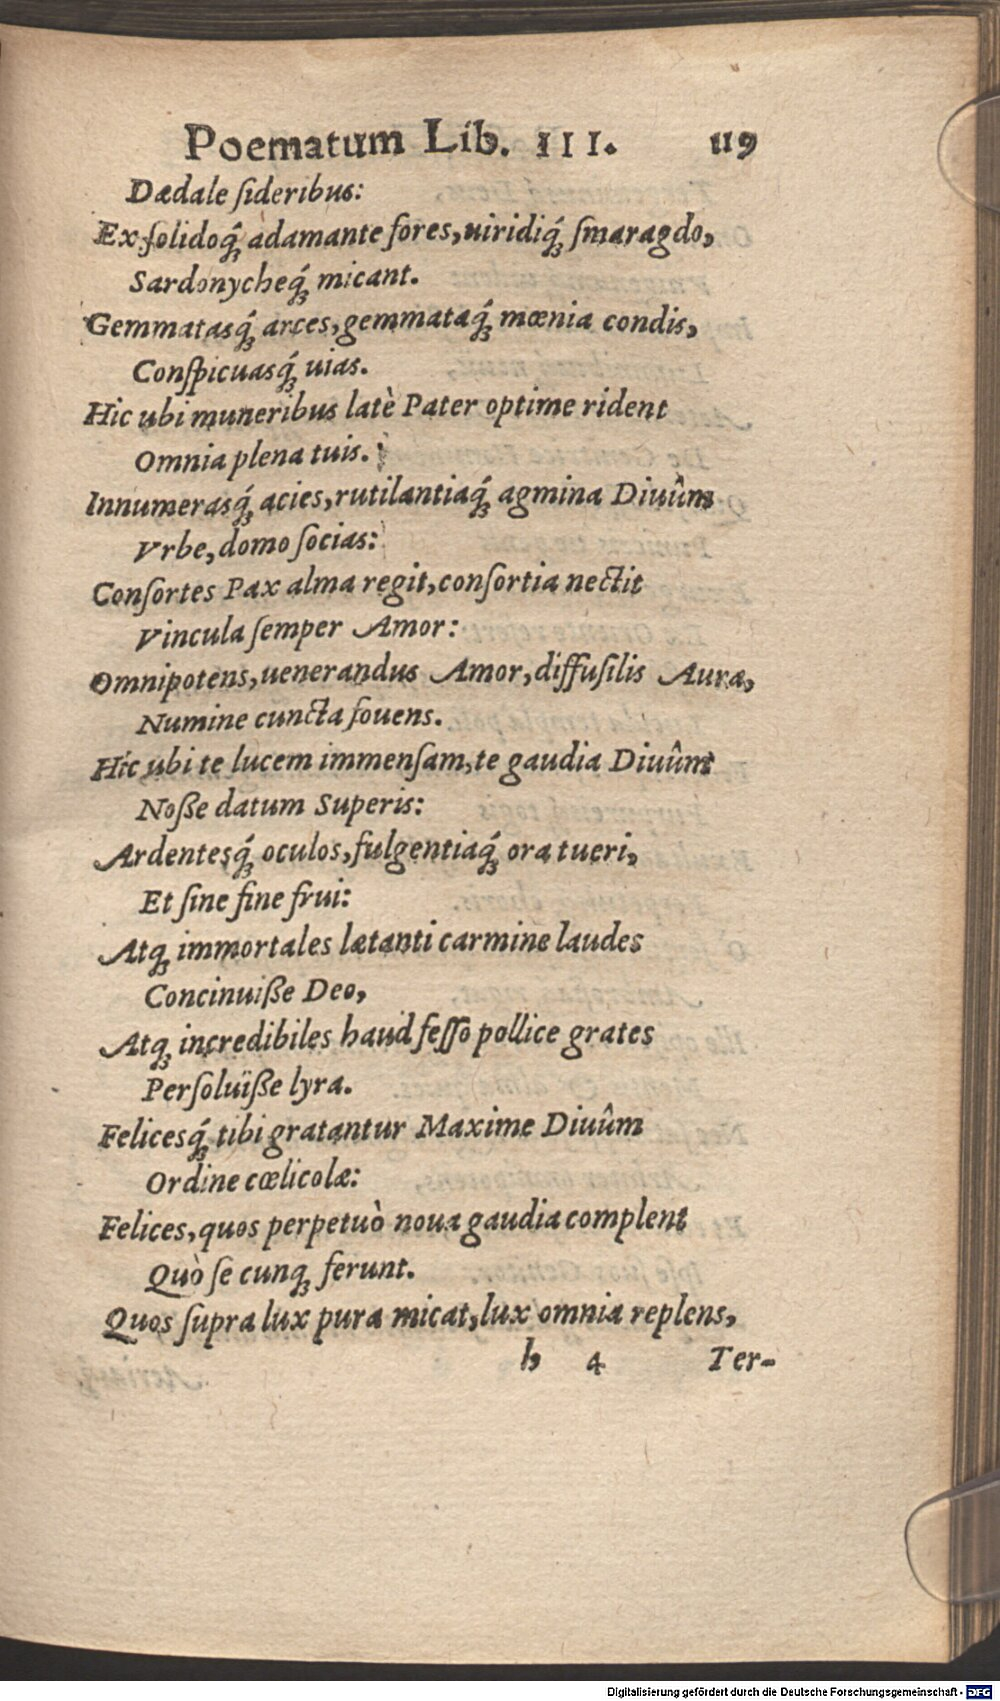 Poematum Lib. III. 119
Dædale ſideribus:
Ex ſolidoq́; adamante fores, uiridiq́; ſmaragdo,
Sardonycheq́; micant.
Gemmatasq́; arces, gemmataq́; mœnia condis,
Conſpicuasq́; uias.
Hic ubi muneribus latè Pater optime rident
Omnia plena tuis.
Innumerasq́; acies, rutilantiaq́; agmina Diuûm
Vrbe, domo ſocias:
Conſortes Pax alma regit, conſortia nectit
Vincula ſemper Amor:
Omnipotens, uenerandus Amor, diffuſilis Auræ,
Numine cuncta fouens.
Hic ubi te lucem immenſam, te gaudia Diuûm
Noße datum Superis:
Ardentesq́; oculos, fulgentiaq́; ora tueri,
Et ſine fine frui:
Atq; immortales lætanti carmine laudes
Concinuiße Deo,
Atq; incredibiles haud feſſo pollice grates
Perſoluïße lyra.
Felicesq́; tibi gratantur Maxime Diuûm
Ordine cœlicolæ:
Felices, quos perpetuò noua gaudia complent
Quò ſe cunq; ferunt.
Quos ſupra lux pura micat, lux omnia replens,
h 4 Ter-
Digitalisierung gefördert durch die Deutsche Forschungsgemeinschaft - DFG